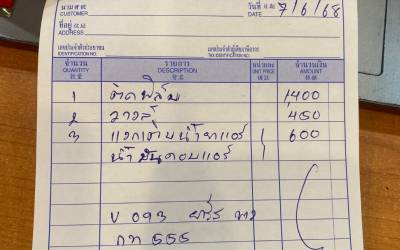 นามลูกค้า CUSTOMER วันที่ (Date) DATE 7/6/68
ที่อยู่ ADDRESS
เลขประจำตัวประชาชน IDENTIFICATION NO. เลขประจำตัวผู้เสียภาษีอากร
จำนวน QUANTITY รายการ DESCRIPTION หน่วยละ UNIT PRICE จำนวนเงิน AMOUNT
1 ติดฟิล์ม 1,400
2 วาวล์ 450
3 600
น้ำมันคอมแอร์
V 093
กท 555